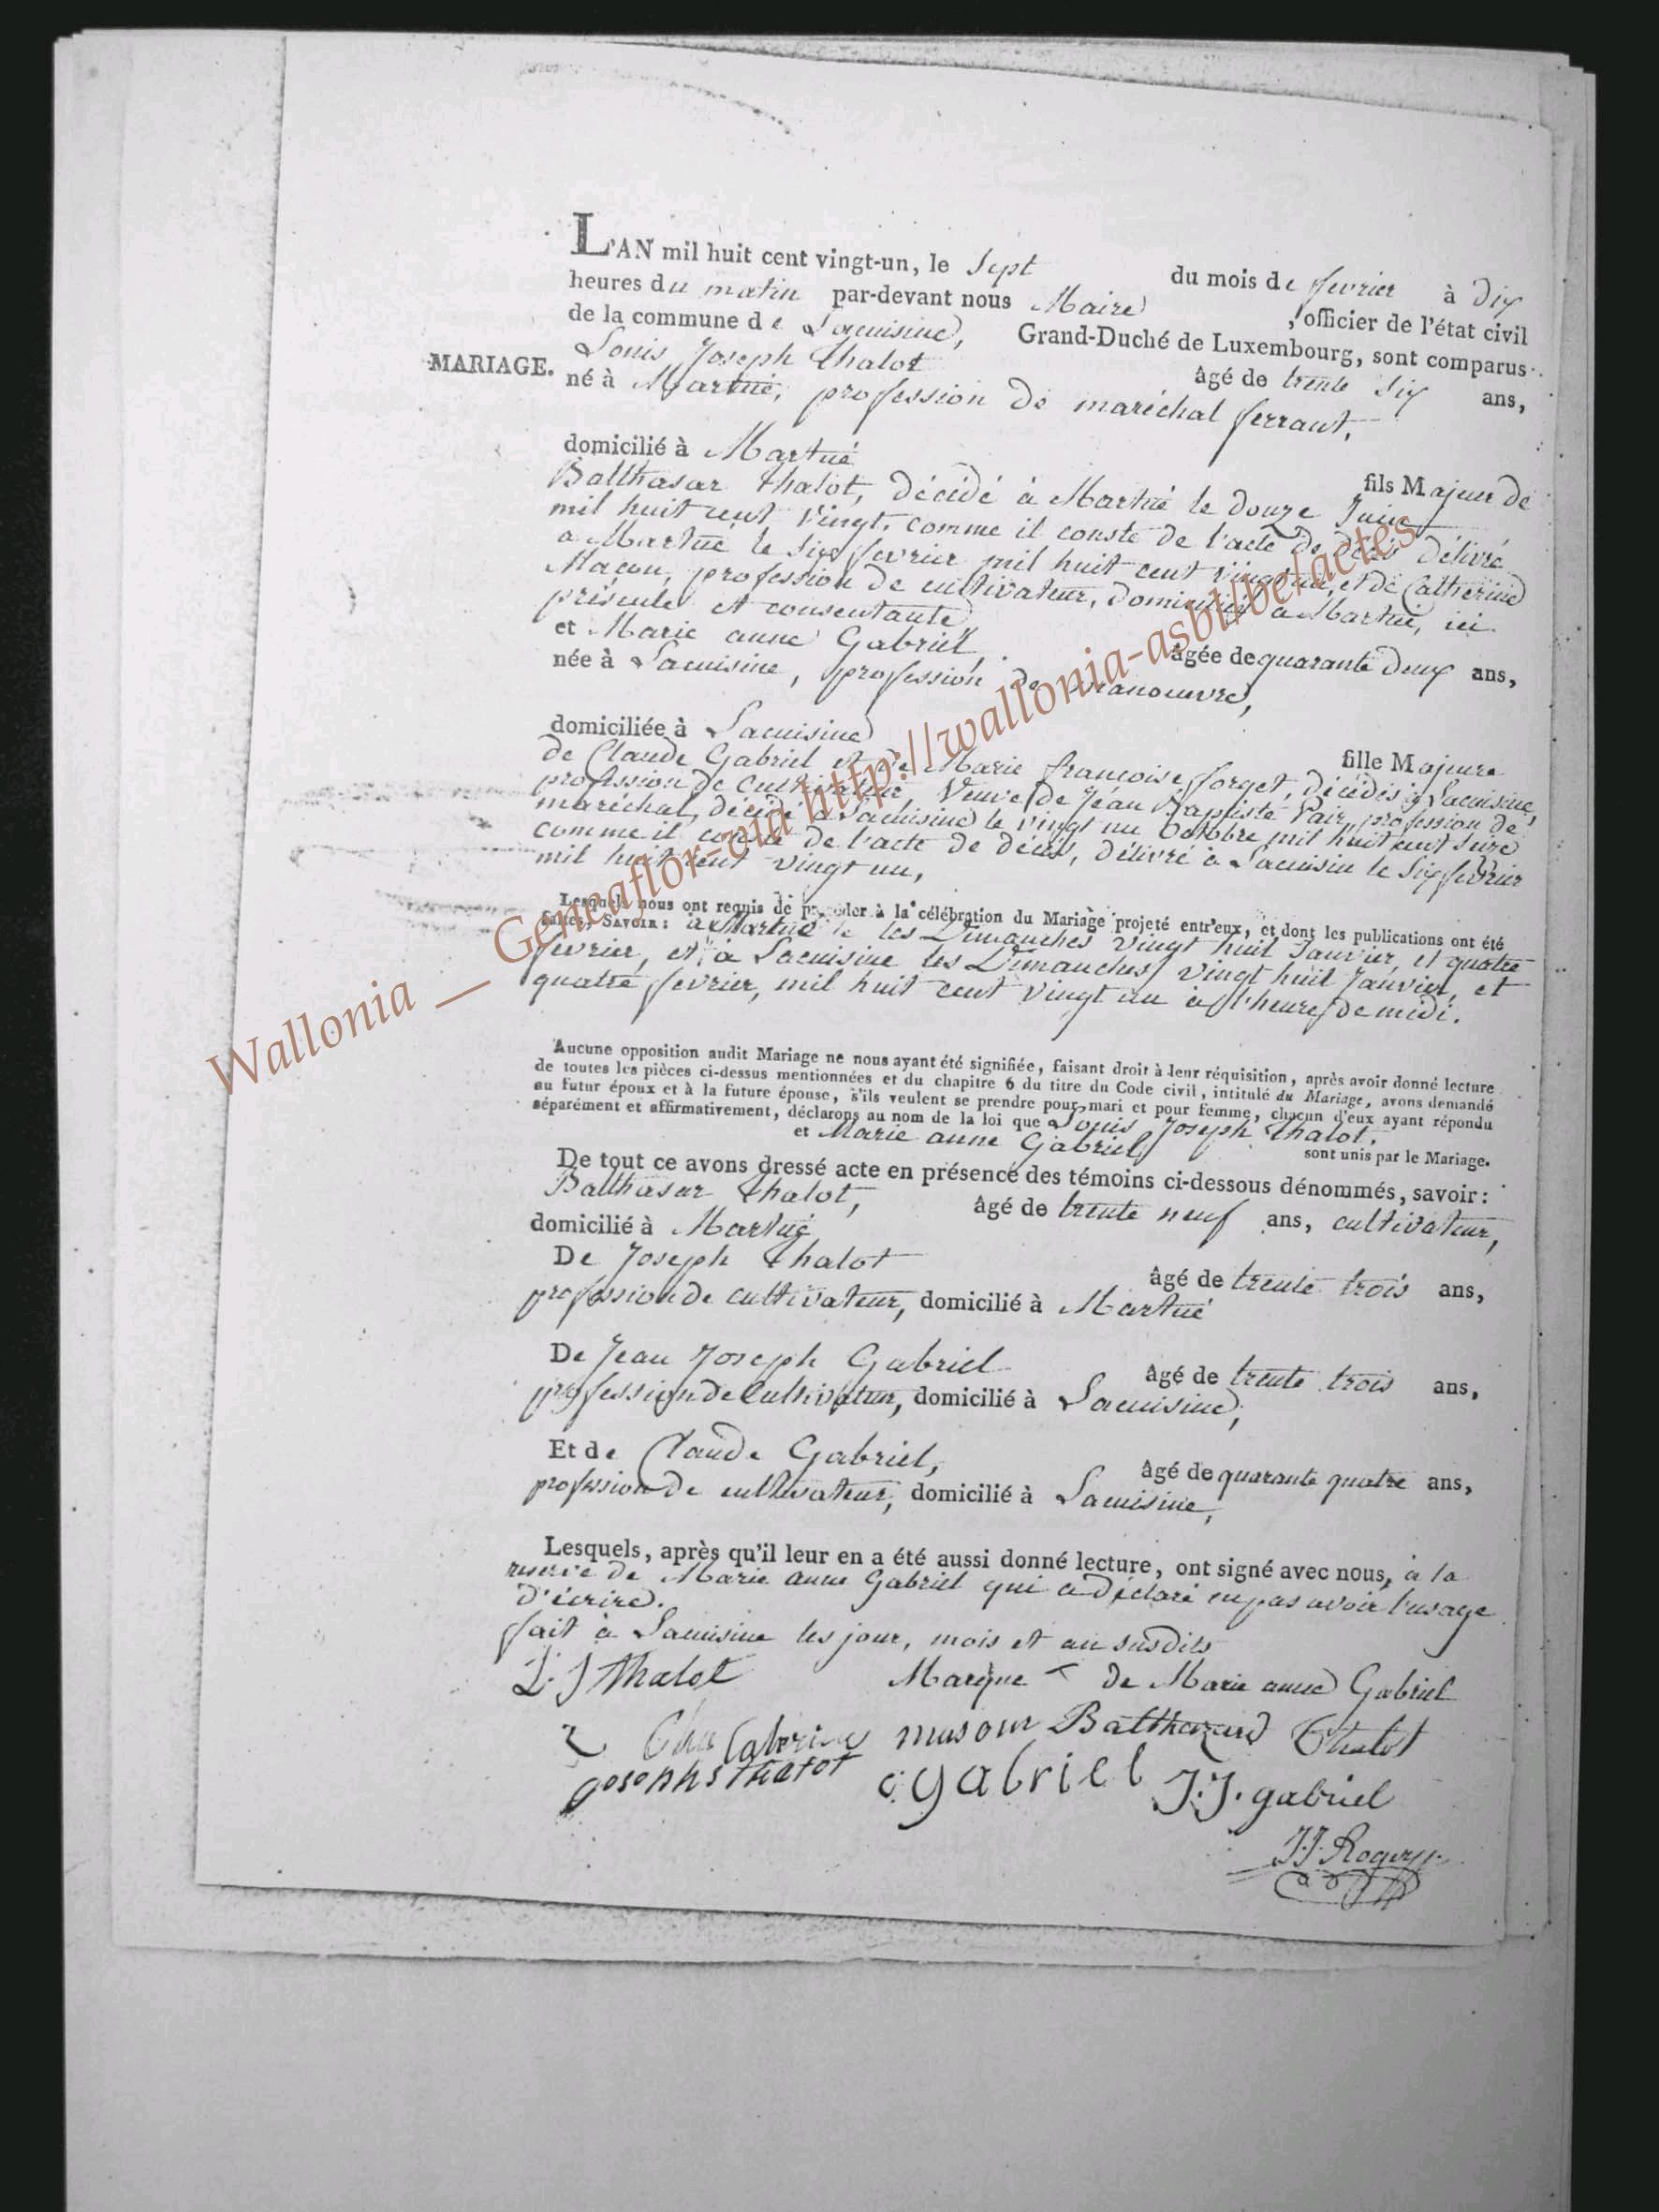 L'AN mil huit cent vingt-un, le Sept du mois de fevrier à Dix
heures du matin par-devant nous Maire, officier de l'état civil
de la commune de Lacuisine, Grand-Duché de Luxembourg, sont comparus
MARIAGE.
Louis Joseph Thalot âgé de trente Six ans,
né à Martué, profession de maréchal ferrant,
domicilié à Martué fils Majeur de
Balthasar Thalot, décidé à Martué le douze Juin
mil huit cent vingt, comme il conste de l'acte de décès délivré
a Martué le Six fevrier mil huit cent vingt un, et de Catherine
Maçon, profession de cultivateur, domiciliés a Martué, ici
présente et consentante
et Marie anne Gabriel, âgée de quarante deux ans,
née à Lacuisine, profession de manouvre,
domiciliée à Lacuisine fille Majeure
de Claude Gabriel et de Marie françoise forget, décédés à Lacuisine,
profession de Cultivateur Veuve de Jean Baptiste Pair, profession de
maréchal, décidé à Lacuisine le vingt un Octobre mil huit cent Seize
comme il conste de l'acte de décès, délivré à Lacuisine le Six fevrier
mil huit cent vingt un,
Lesquels nous ont requis de procéder à la célébration du Mariage projeté entr'eux, et dont les publications ont été
faites, SAVOIR: à Martué les Dimanches vingt huit Janvier, et quatre
fevrier, et à Lacuisine les Dimanches vingt huit Janvier, et
quatre fevrier, mil huit cent vingt un à l'heure de midi.
Aucune opposition audit Mariage ne nous ayant été signifiée, faisant droit à leur réquisition, après avoir donné lecture
de toutes les pièces ci-dessus mentionnées et du chapitre 6 du titre du Code civil, intitulé du Mariage, avons demandé
au futur époux et à la future épouse, s'ils veulent se prendre pour mari et pour femme, chacun d'eux ayant répondu
séparément et affirmativement, déclarons au nom de la loi que Louis Joseph Thalot,
et Marie anne Gabriel sont unis par le Mariage.
De tout ce avons dressé acte en présence des témoins ci-dessous dénommés, savoir:
Balthasar Thalot, âgé de trente neuf ans, cultivateur,
domicilié à Martué
De Joseph Thalot âgé de trente trois ans,
profession de cultivateur, domicilié à Martué
De Jean Joseph Gabriel âgé de trente trois ans,
profession de Cultivateur, domicilié à Lacuisine,
Et de Claude Gabriel, âgé de quarante quatre ans,
profession de cultivateur, domicilié à Lacuisine,
Lesquels, après qu'il leur en a été aussi donné lecture, ont signé avec nous, à la
reserve de Marie anne Gabriel qui a déclaré en pas avoir l'usage
d'écrire.
fait à Lacuisine les jour, mois et an susdits
L J Thalot Marque de Marie anne Gabriel
masom Balthazard Thalot
Joseph Thalot C: gabriel J.J. gabriel
J.J. Rogery
Wallonia __ Geneaflor-via http://wallonia-asbl/be/actes